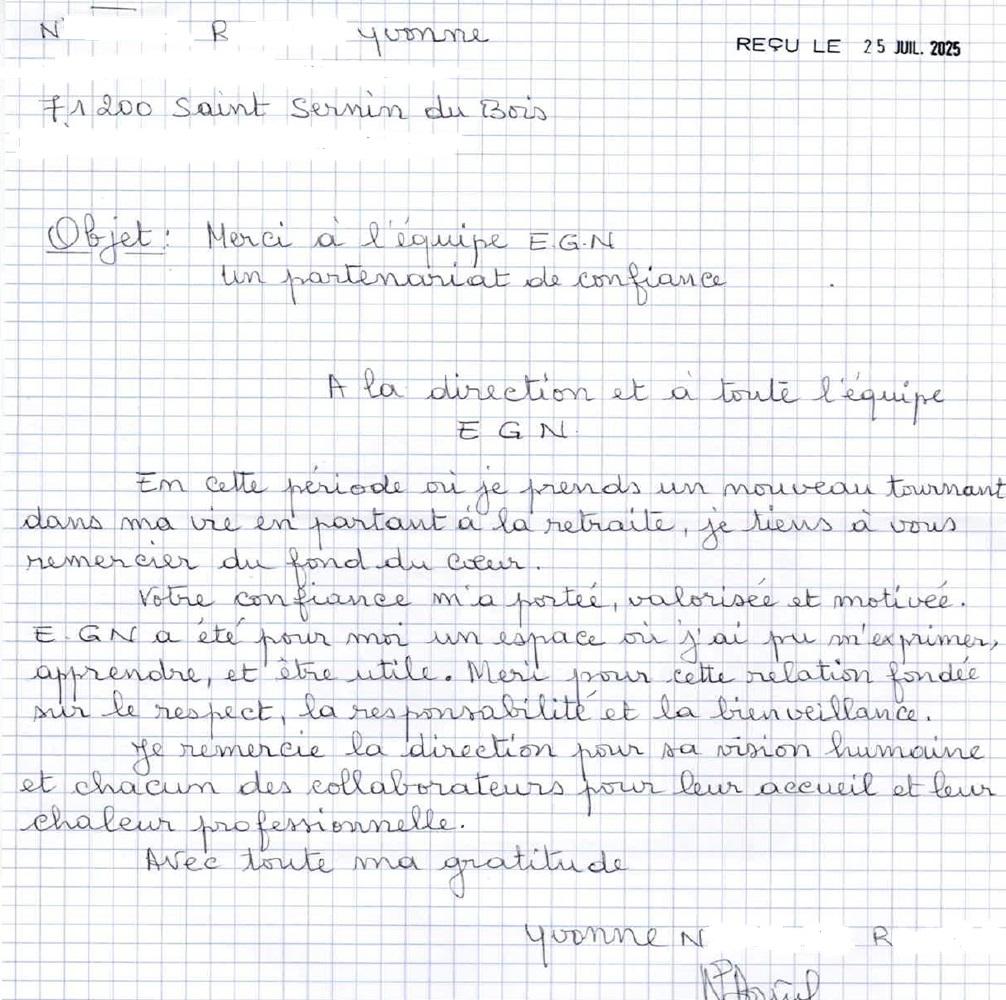 N R Yvonne
REÇU LE 25 JUIL. 2025
71200 Saint Sernin du Bois
Objet : Merci à l'équipe E.G.N
Un partenariat de confiance
A la direction et à toute l'équipe
E G N.
En cette période où je prends un nouveau tournant
dans ma vie en partant à la retraite, je tiens à vous
remercier du fond du cœur.
Votre confiance m'a portée, valorisée et motivée.
E.GN a été pour moi un espace où j'ai pu m'exprimer,
apprendre, et être utile. Meri pour cette relation fondée
sur le respect, la responsabilité et la bienveillance.
Je remercie la direction pour sa vision humaine
et chacun des collaborateurs pour leur accueil et leur
chaleur professionnelle.
Avec toute ma gratitude
Yvonne N R